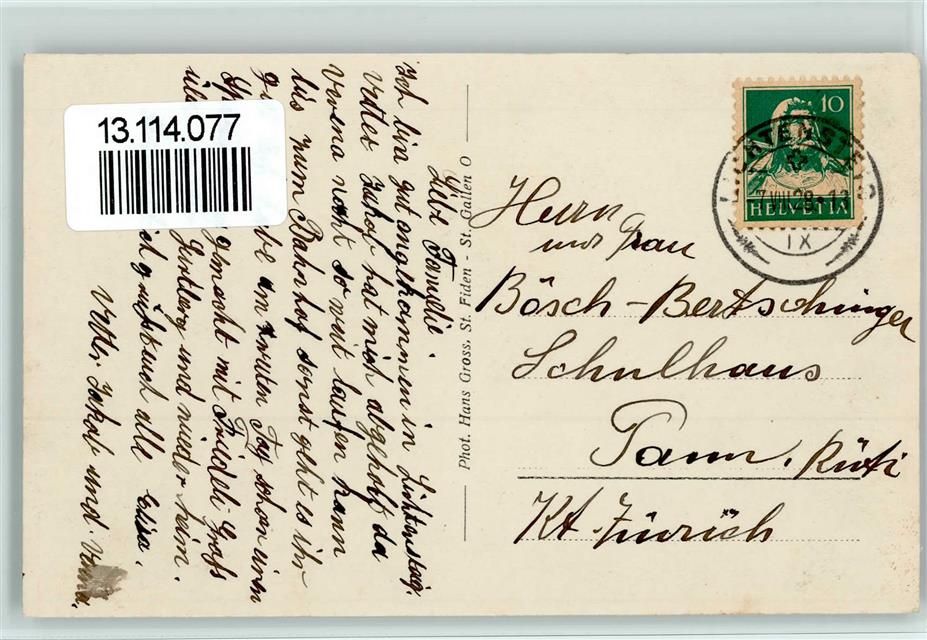 13.114.077
Liebe Familie.
Ich bin gut angekommen in Lichtensteig.
Vetter Jakob hat mich abgeholt da
Verena nicht so weit laufen kann
bis zum Bahnhof sonst geht es ihr
am zweiten Tag schon einen
gemacht mit Friedeli Graf
und wieder heim.
grüssend alle Elisa.
Vetter Jakob und
Phot. Hans Gross, St. Fiden - St. Gallen O
10
HELVETIA
LICHTENSTEIG
7.VIII.29-13
IX
Herrn
und Frau
Bösch-Bertschinger
Schulhaus
Tann, Rüti
Kt. Zürich